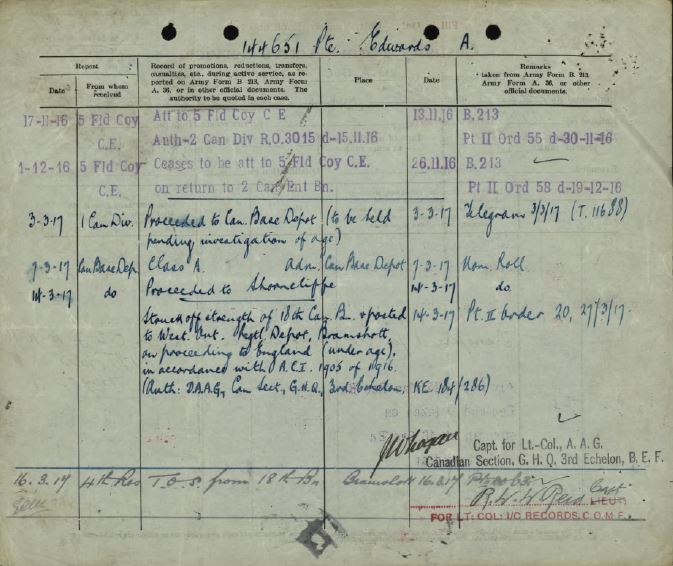 144651 Pte. Edwards A.
Report
Record of promotions, reductions, transfers, casualties, etc., during active service, as reported on Army Form B. 213, Army Form A. 36, or in other official documents. The authority to be quoted in each case.
Place
Date
Remarks taken from Army Form B. 213, Army Form A. 36, or other official documents.
Date
From whom received
17-11-16 5 Fld Coy Att to 5 Fld Coy C E 13.11.16 B.213
C.E. Auth-2 Can Div R.O.3015 d-15.11.16 Pt II Ord 55 d-30-11-16
1-12-16 5 Fld Coy Ceases to be att to 5 Fld Coy C.E. 26.11.16 B.213
C.E. on return to 2 Can Ent Bn. Pt II Ord 58 d-19-12-16
3-3-17 1 Can Div. Proceeded to Can. Base Depot (to be held 3-3-17 Telegram 3/3/17 (T. 11688)
pending investigation of age)
7-3-17 Can Base Dep. Class A. adm. Can Base Depot 7-3-17 Nom. Roll
14-3-17 do Proceeded to Shorncliffe 14-3-17 do.
Struck off strength of 18th Can. Bn. & posted 14-3-17 Pt. II Order 20, 27/3/17.
to West. Ont. Regtl. Depot, Bramshott,
on proceeding to England (under age),
in accordance with A.C.I. 1905 of 1916.
(Auth: D.A.A.G., Can Sect., G.H.Q., 3rd Echelon, KE. 184/286)
Capt. for Lt.-Col., A. A. G.
Canadian Section, G. H. Q. 3rd Echelon, B. E. F.
16.3.17 4th Res T.O.S. from 18th Bn Bramshott 16.3.17
R. W. W. Reid Capt
LIEUT:
FOR LT: COL: I/C RECORDS. C.O.M.F.